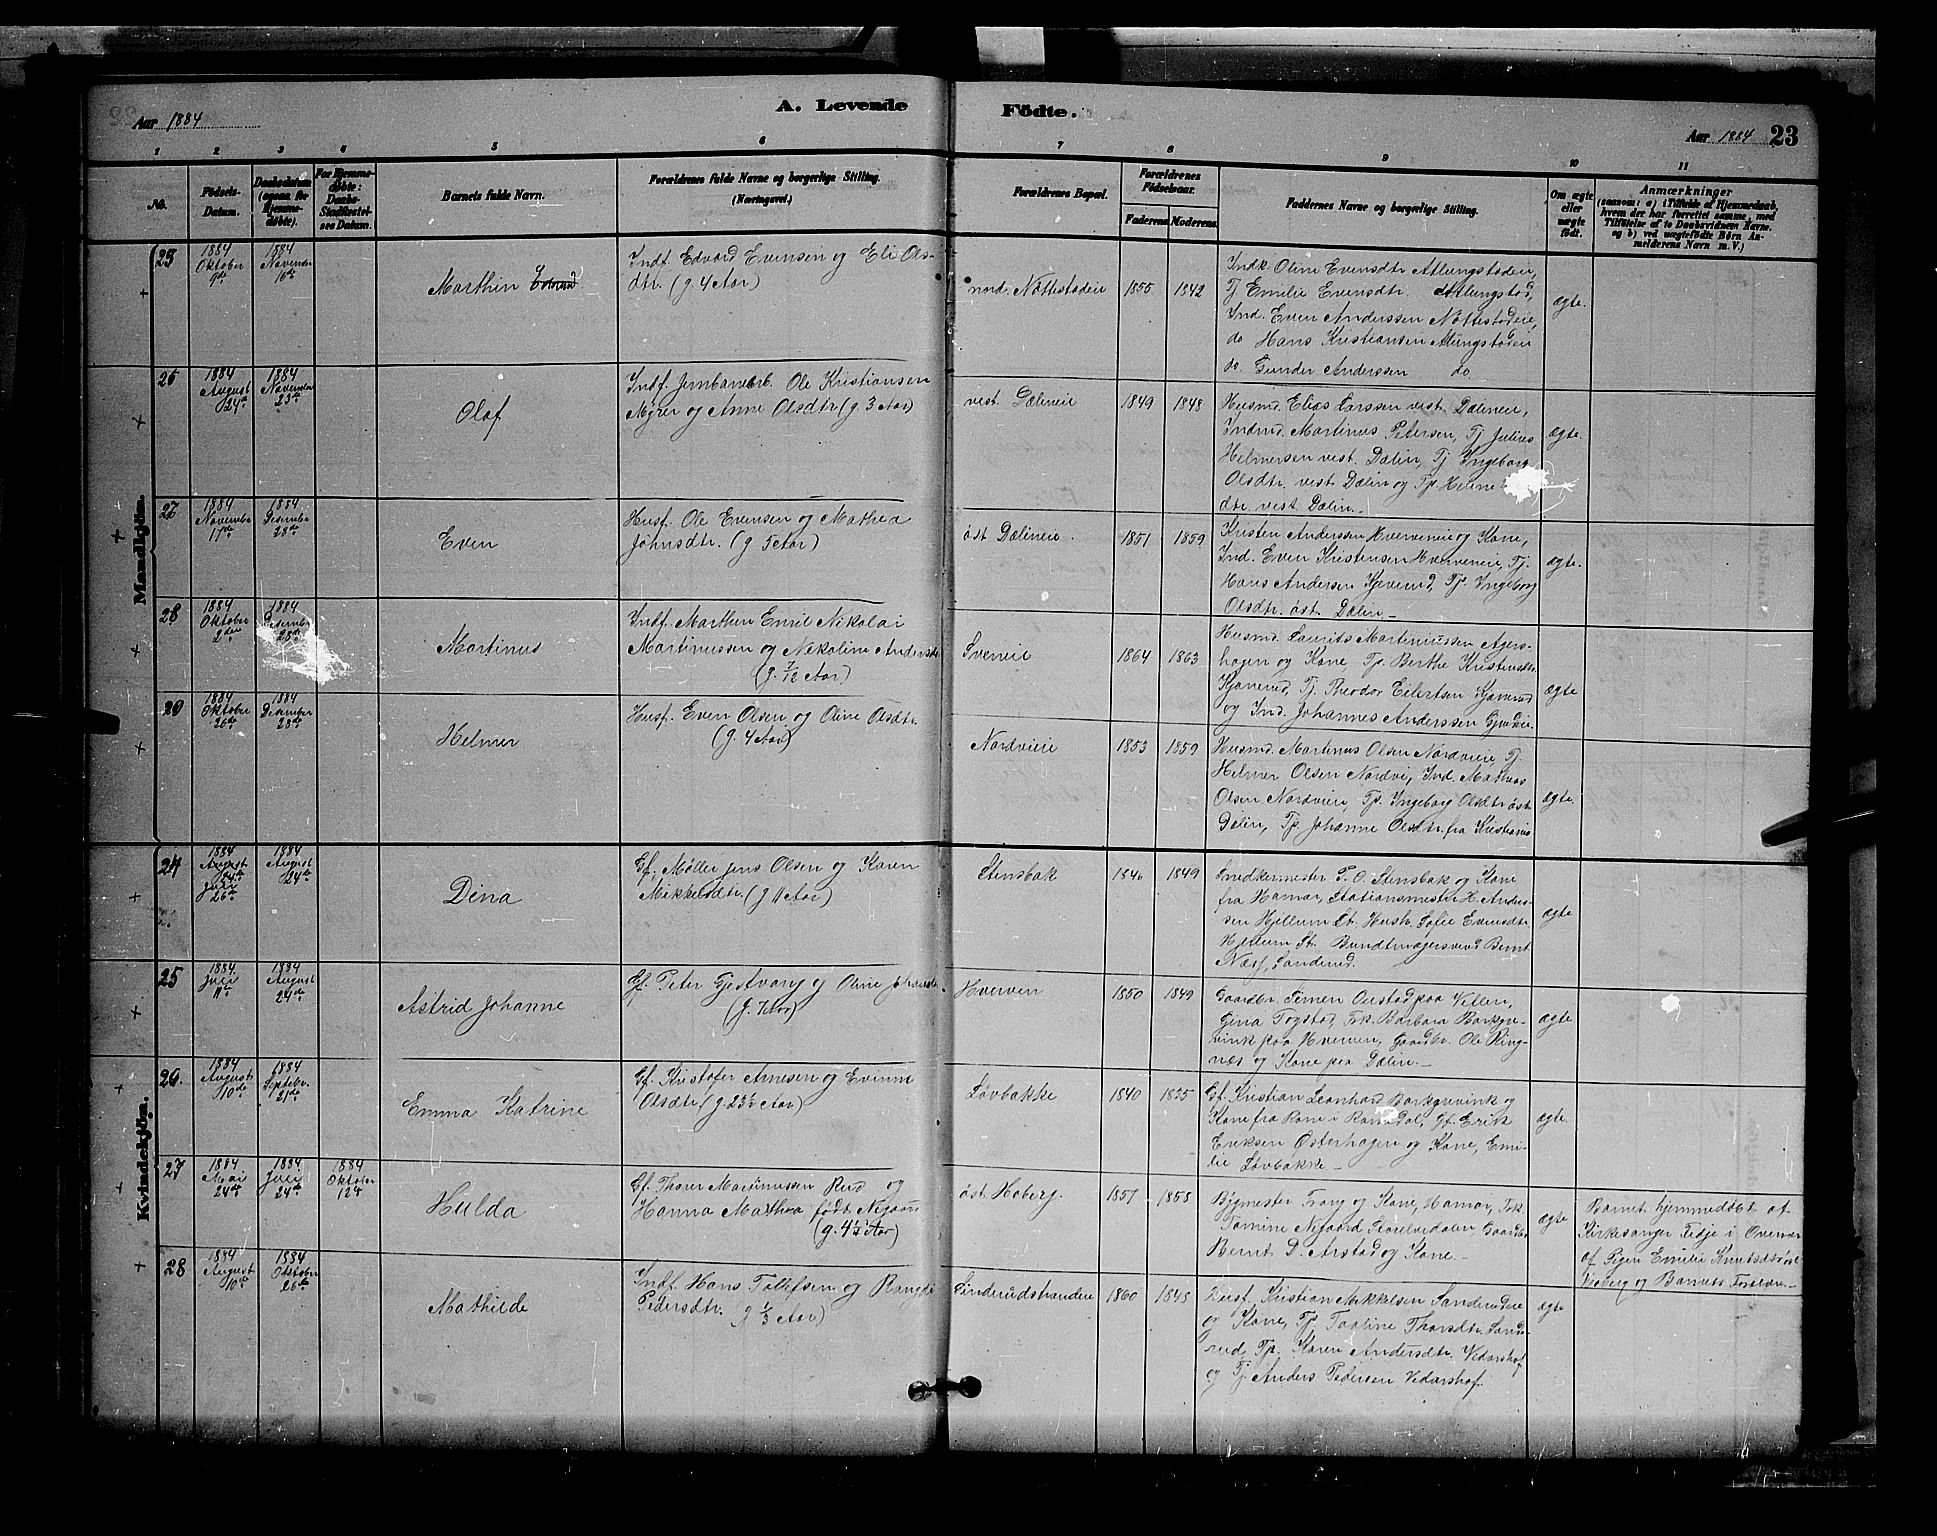 A. Levende
Födte.
Aar 1884
Aar 1884 23
1 2 3 4 5 6 7 8 9 10 11
No.
Födsels-Datum.
Daabsdatum (ogsaa for Hjemmedöbte).
For Hjemmedöbte: Daabs-Stadfæstelses Datum.
Barnets fulde Navn.
Forældrenes fulde Navne og borgerlige Stilling. (Næringsvei.)
Forældrenes Bopæl.
Forældrenes Födselsaar.
Faderens. Moderens.
Faddernes Navne og borgerlige Stilling.
Om ægte eller uægte födt.
Anmærkninger
(saasom: a) i Tilfælde af Hjemmedaab, hvem der har forrettet samme, med Tilföielse af to Daabsvidners Navne. og b) ved uægtefödte Börn Anmelderens Navn m. V.)
Mandkjön.
25
1884 Oktober 9de
1884 November 16de
Marthin Edvard
Indf. Edvard Evensen og Eli Olsdtr. (g. 4 Aar)
nord. Nöttestadeie
1855 1842
Indk. Oline Evensdtr Atlungstadeie,
Tj Emilie Evensdtr. Atlungstad,
Ind. Even Anderssen Nöttestadeie,
do Hans Kristiansen Atlungstadeie
do. Gunder Anderssen do
ægte.
26
1884 August 24de
1884 November 23de
Olaf
Indf. Jernbanearb. Ole Kristiansen
Myrer og Anne Olsdtr (g. 3 Aar)
vest. Dælineie
1849 1848
Husmd. Elias Larssen vest. Dælineie,
Indmd. Martinus Petersen, Tj Julius
Helmersen vest. Dælin, Tj Ingeborg
Olsdtr. vest Dælin og Tp. Helene
dtr. vest. Dælin.
ægte.
27
1884 November 17de
1884 Desember 28de
Even
Husf. Ole Evensen og Mathea
Johnsdtr. (g. 5 Aar)
öst Dælineie.
1851 1859
Kristen Anderssen Hverveneie og Kone,
Ind. Even Kristensen Hverveneie, Tj.
Hans Andersen Kjeverud, Tp. Ingeborg
Olsdtr. öst. Dælin
ægte.
28
1884 Oktober 2den
1884 Desember 28de
Martinus
Indf. Marthin Emil Nikolai
Martinussen og Nikoline Andersdtr
(g. 7/12 Aar)
Sveneie
1864 1863
Husmd. Laurits Martiniussen Agershagen og Kone Tp. Berthe Kristiansdtr
Kjæverud, Tj. Theodor Eilertsen Kjæverud
og Ind. Johannes Anderssen
ægte
29
1884 Oktober 26de
1884 Desember 28de
Helmer
Husf. Even Olsen og Oline Olsdtr.
(g. 4 Aar)
Nordvieie
1853 1859
Husmd. Martinus Olsen Nordvieie, Tj.
Helmer Olsen Nordvi, Ind. Mathias
Olsen Nordvieie, Tp. Ingeborg Olsdtr öst
Dælin, Tp. Johanne Olsdtr. fra Kristiania
ægte.
Kvindekjön.
24
1884 August 24de Juli 26de
1884 August 24de
Dina
Gf. Møller Jens Olsen og Karen
Mikkelsdtr. (g 11 Aar)
Stensbak
1846 1849
Snedkermester P. O. Stensbak og Kone
fra Hamar, Stationsmester H. Anderssen Hjellum St. Hush. Sofie Evensdtr
Hjellum St. Bundtmagersvend Bernt
Næss, Sanderud.
ægte
25
1884. Juli 11te
1884 August 24de
Astrid Johanne
Gf. Peter Gjestvang og Oline Johansdtr
(g. 7 Aar)
Hverven
1850 1849
Gaardbr. Simen Oustad paa Villen,
Gina Togstad, Frk. Barbara Borkgrevink paa Hverven, Gaardbr. Ole Ringnæs og Kone paa Dælin.
ægte
26.
1884 August 10de
1884 Septebr. 21de
Emma Katrine
Gf. Kristofer Arnesen og Evinne
Olsdtr (g. 23½ Aar)
Løvbakke
1840 1835
Gf. Kristian Leonhard Borkgrevink og
Kone fra Rane i Ranedal, Gf. Erik
Eriksen Østerhagen og Kone, Emilie Løvbakke
ægte.
27
1884 Mai 24de
1884 Juli 24de
1884 Oktober 12te
Hulda
Gf. Thorer Martinussen Rud og
Hanna Mathea født Nygaard
(g. 4½ Aar)
öst. Hoberg.
1857 1858
Bygmester Trang og Kone, Hamar, Frk.
Tomine Nygaard Gaardbr
Bernt D. Arstad og Kone.
ægte
Barnet hjemmedøbt af
Kirkesanger Tidje i
af Pigen Emilie Knutsdtr
Vieberg og Barnets Forældre.
28
1884 August 10de
1884 Oktober 26de
Mathilde
Indf. Hans Tollefsen og Rangdi
Pedersdtr. (g 1/3 Aar)
Sanderudstrandeie
1860 1848
Husf. Kristian Mikkelsen Sanderudeie
og Kone, Tp. Taaline Thorsdtr. Sanderud, Tp. Karen Andersdtr. Vedarshof
og Tj. Anders Pedersen Vedarshof.
ægte